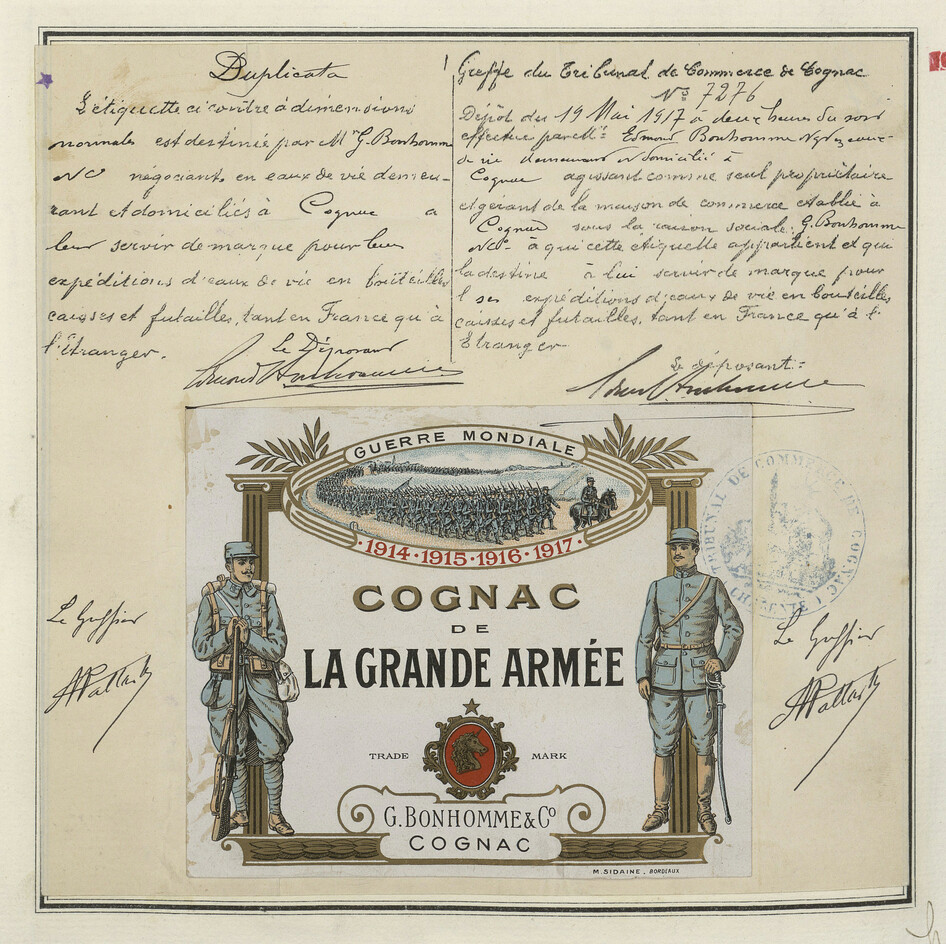 Duplicata
L'étiquette ci contre à dimensions
normales est destinée par M G. Bonhomme
& Co négociants en eaux de vie demeu-
rant et domiciliés à Cognac a
leur servir de marque pour leur
expéditions d'eaux de vie en bouteilles
caisses et futailles, tant en France qu'à
l'Etranger.
Le Déposant
Greffe du Tribunal de Commerce de Cognac
No 7276
Dépôt du 19 Mai 1917 à deux heures du soir
effectué par Mr Edmond Bonhomme Ngt en eaux
de vie demeurant et domicilié à
Cognac agissant comme seul propriétaire
et gérant de la maison de commerce établie à
Cognac sous la raison sociale: G. Bonhomme
& Co à qui cette etiquette appartient et qui
la destine à lui servir de marque pour
ses expéditions d'eaux de vie en bouteilles,
caisses et futailles, tant en France qu'à l'
Etranger
Le déposant:
GUERRE MONDIALE
1914·1915·1916·1917·
COGNAC
DE
LA GRANDE ARMÉE
TRADE MARK
G. BONHOMME & Co
COGNAC
M. SIDAINE, BORDEAUX
TRIBUNAL DE COMMERCE DE COGNAC
CHARENTE
Le Greffier
Le Greffier